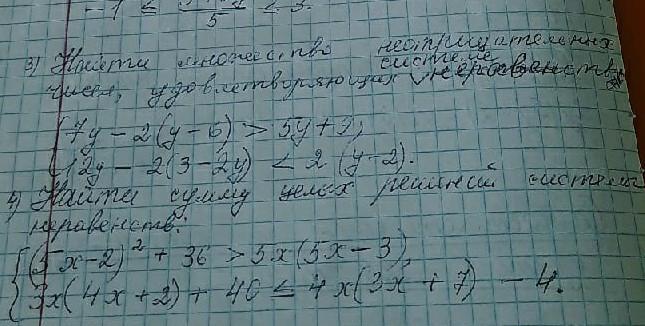 5
3) Найти множество неотрицательных
чисел, удовлетворяющих системе неравенств
7y - 2(y - 6) > 5y + 9;
12y - 2(3 - 2y) < 2(y - 2).
4) Найти сумму целых решений системы
неравенств:
(5x - 2)² + 36 > 5x(5x - 3),
3x(4x + 2) + 40 ≤ 4x(3x + 7) - 4.